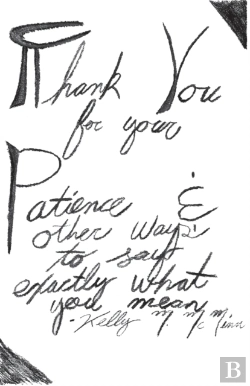 Thank You
for your
Patience &
other ways
to say
exactly what
you mean
- Kelly M. McMinn
B